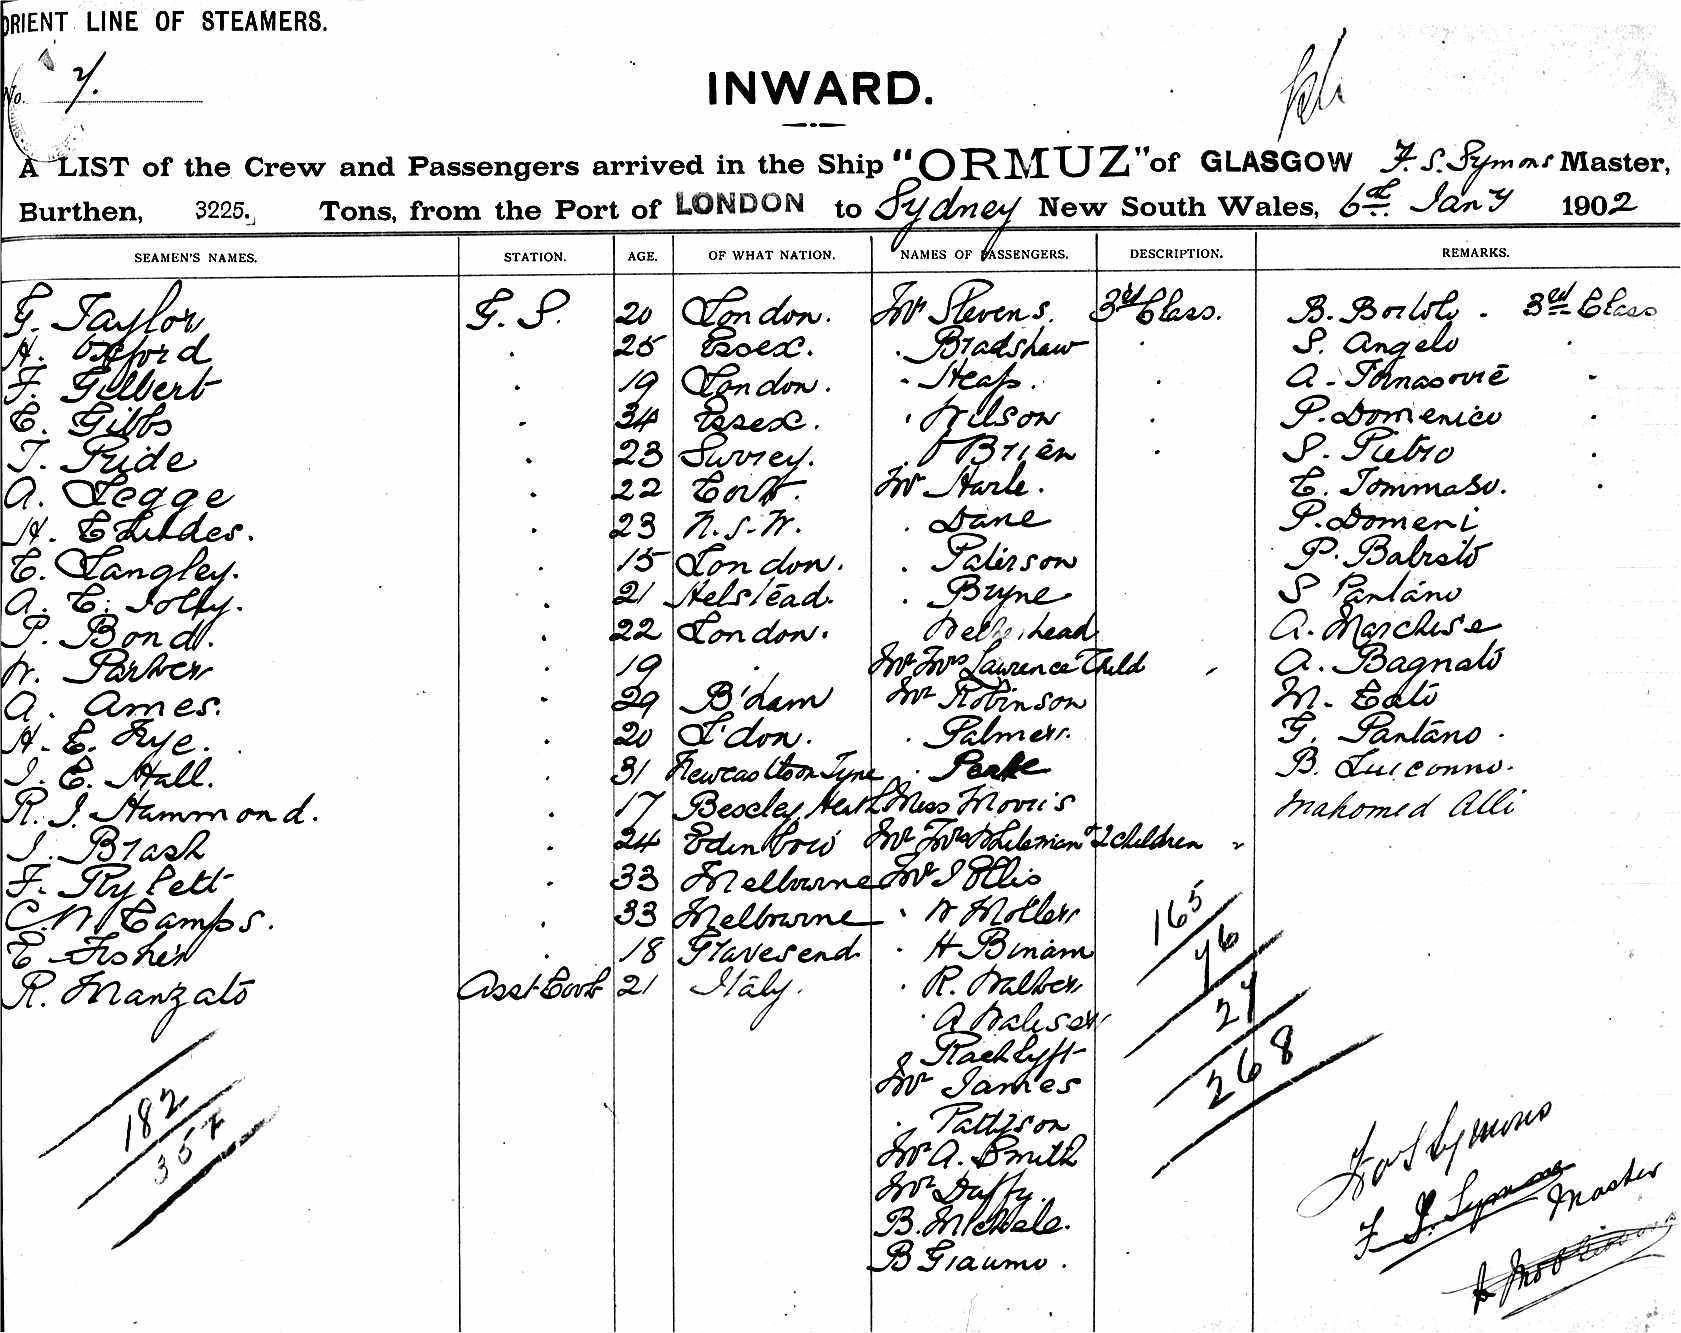 ORIENT LINE OF STEAMERS.
No. 7.
INWARD.
A LIST of the Crew and Passengers arrived in the Ship "ORMUZ" of GLASGOW F. S. Symons Master,
Burthen, 3225. Tons, from the Port of LONDON to Sydney New South Wales, 6th Jany 1902
SEAMEN'S NAMES. STATION. AGE. OF WHAT NATION. NAMES OF PASSENGERS. DESCRIPTION. REMARKS.
G. Taylor G. S. 20 London. Mr Stevens. 3rd Class. B. Bortolo - 3rd Class
H. Oxford . 25 Essex. . Bradshaw . S. Angelo .
F. Gilbert . 19 London. . Heaps. . A. Tomasovic .
E. Gibbs . 34 Essex. . Wilson . P. Domenico .
T. Pride . 23 Surrey. . O'Brien . S. Pietro .
A. Legge . 22 Cork. Mr Harle. E. Tommaso. .
H. . 23 N.S.W. . Dane P. Domeni
E. Langley. . 15 London. . Paterson P.
A. E. Jolly. . 21 Helstead. . Bryne S Pantano
P. Bond. . 22 London. A. Marchese
W. Parker . 19 . Mr Mrs Lawrence Child . A. Bagnato
A. Ames. . 29 B'ham Mr Robinson M. Cato
H. E. Frye. . 20 L'don. . Palmer. G. Pantano .
J. E. Hall. . 31 Newcastle on Tyne . B.
R. J. Hammond. . 17 Bexley Heath Miss Morris Mahomed Alli
J. Brash . 24 Edinboro' Mr Mrs & 2 children "
F. Rylett . 33 Melbourne Mr J Ellis
C. W Camps. . 33 Melbourne . W Moller
E Fisher . 18 Gravesend . H Binam
R. Manzato Asst Cook 21 Italy. . R. Walker
. A
Mr James
. Pattison
Mr A. Smith
Mr Duffy.
B. Michele.
B Giaumo.
165
76
27
268
182
357
F. S. Symons
Master